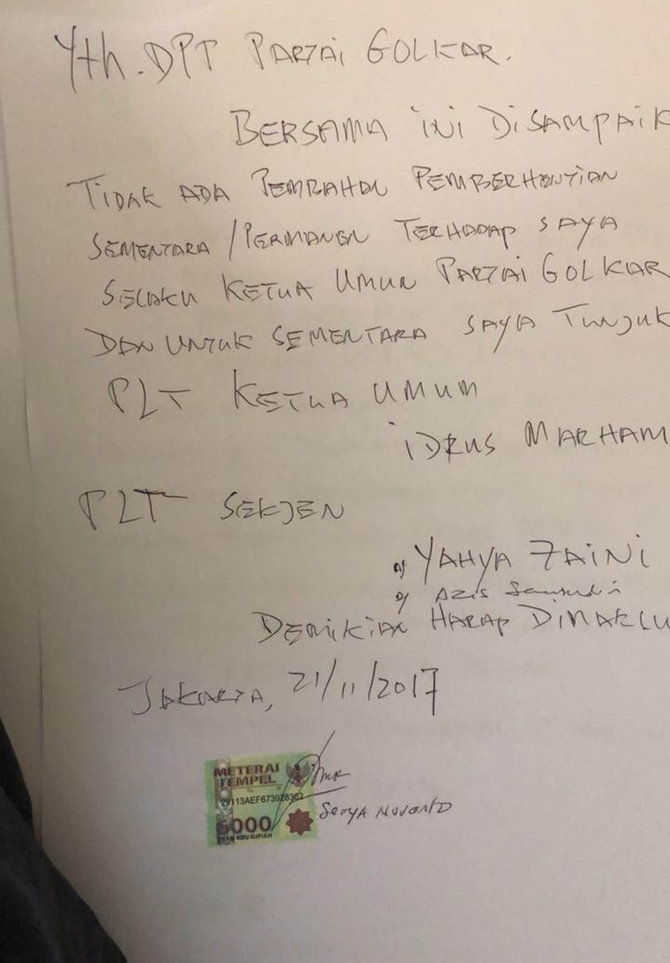 Yth. DPT PARTAI GOLKAR.
BERSAMA INI DISAMPAIK
TIDAK ADA PEMBAHAN PEMBERHENTIAN
SEMENTARA / PERMANEN TERHADAP SAYA
SELAKU KETUA UMUM PARTAI GOLKAR
DAN UNTUK SEMENTARA SAYA TUNJUK
PLT KETUA UMUM
IDRUS MARHAM
PLT SEKJEN
a) YAHYA ZAINI
b) AZIS Samsudin
DEMIKIAN HARAP DIMAKLU
JAKARTA, 21/11/2017
METERAI
TEMPEL
6000
ENAM RIBU RUPIAH
SETYA NOVANTO